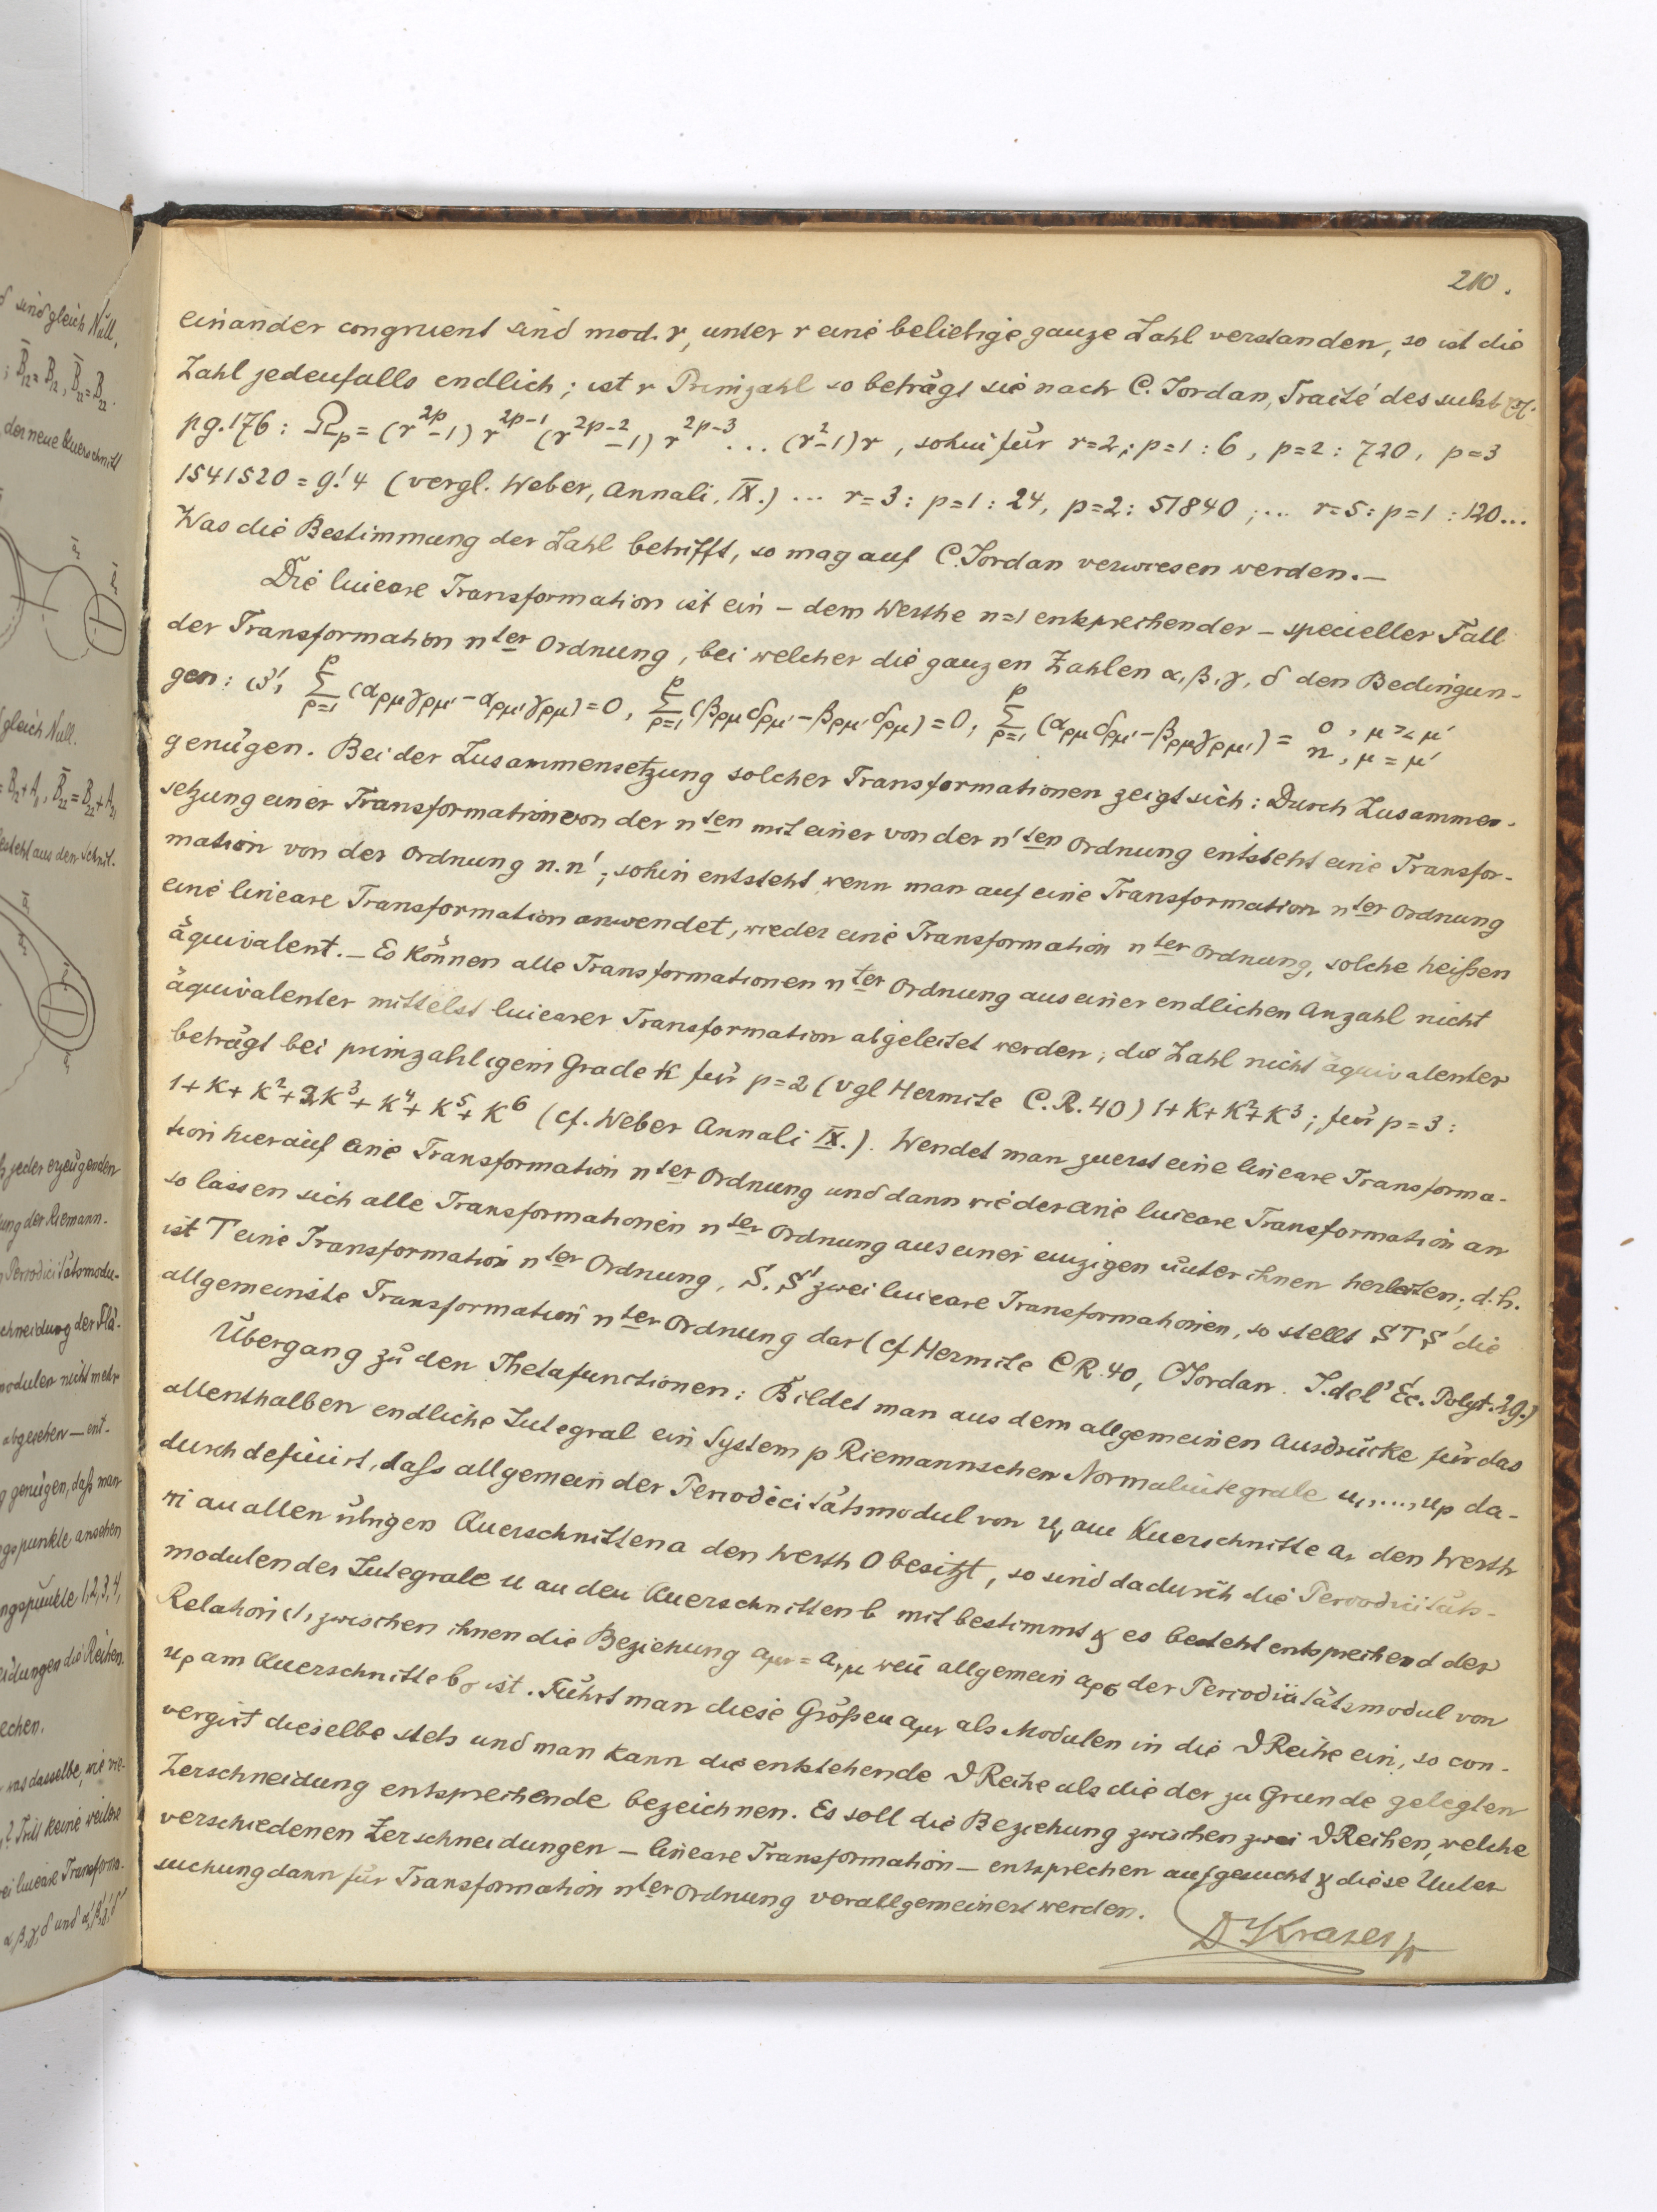 210.
einander congruent sind mod. r, unter r eine beliebige ganze Zahl verstanden, so ist die
Zahl jedenfalls endlich; ist r Primzahl so beträgt sie nach C. Jordan, Traité des subst
pg. 176: Ωp = (r^2p - 1) r^2p-1 (r^2p-2 - 1) r^2p-3 ... (r^2 - 1) r, sohin für r=2; p=1 : 6, p=2 : 720, p=3
1541520 = 9!4 (vergl. Weber, Annali, IX.) ... r=3 : p=1 : 24, p=2 : 51840; ... r=5 : p=1 : 120...
Was die Bestimmung der Zahl betrifft, so mag auf C. Jordan verwiesen werden. —
Die lineare Transformation ist ein — dem Werthe n=1 entsprechender — specieller Fall
der Transformation nter Ordnung, bei welcher die ganzen Zahlen α, β, γ, δ den Bedingun-
gen: (3') Σ_{ρ=1}^{p} (αρμ γρμ' - αρμ' γρμ) = 0, Σ_{ρ=1}^{p} (βρμ δρμ' - βρμ' δρμ) = 0, Σ_{ρ=1}^{p} (αρμ δρμ' - βρμ γρμ') = 0, μ ≷ μ'
n, μ = μ'
genügen. Bei der Zusammensetzung solcher Transformationen zeigt sich: Durch Zusammen-
setzung einer Transformation von der nten mit einer von der n'ten Ordnung entsteht eine Transfor-
mation von der Ordnung n.n'; sohin entsteht wenn man auf eine Transformation nter Ordnung
eine lineare Transformation anwendet, wieder eine Transformation nter Ordnung, solche heißen
äquivalent. — Es können alle Transformationen nter Ordnung aus einer endlichen Anzahl nicht
äquivalenter mittelst linearer Transformation abgeleitet werden; die Zahl nicht äquivalenter
beträgt bei primzahligem Grade k für p=2 (vgl Hermite C.R. 40) 1+k+k^2+k^3; für p=3:
1+k+k^2+2k^3+k^4+k^5+k^6 (cf. Weber Annali IX.). Wendet man zuerst eine lineare Transforma-
tion hierauf eine Transformation nter Ordnung und dann wieder eine lineare Transformation an
so lassen sich alle Transformationen nter Ordnung aus einer einzigen unter ihnen herleiten; d.h.
ist T eine Transformation nter Ordnung, S, S' zwei lineare Transformationen, so stellt STS' die
allgemeinste Transformation nter Ordnung dar (cf Hermite CR. 40, C Jordan. J. de l'Éc. Polyt. 29.)
Übergang zu den Thetafunctionen: Bildet man aus dem allgemeinen Ausdrucke für das
allenthalben endliche Integral ein System p Riemannschen Normalintegrale u1, ...., up da-
durch definirt, dafs allgemein der Periodicitätsmodul von uν am Querschnitte aν den Werth
πi an allen übrigen Querschnitten a den Werth 0 besitzt, so sind dadurch die Periodicitäts-
modulen der Integrale u an den Querschnitten b mit bestimmt & es besteht entsprechend der
Relation (1) zwischen ihnen die Beziehung aμν = aνμ weñ allgemein aρσ der Periodicitätsmodul von
uρ am Querschnitte bσ ist. Führt man diese Größen aμν als Modulen in die ϑ Reihe ein, so con-
vergirt dieselbe stets und man kann die entstehende ϑ Reihe als die der zu Grunde gelegten
Zerschneidung entsprechende bezeichnen. Es soll die Beziehung zwischen zwei ϑ Reihen, welche
verschiedenen Zerschneidungen — lineare Transformation — entsprechen aufgesucht & diese Unter
suchung dann für Transformation nter Ordnung verallgemeinert werden.
Dr Krazer